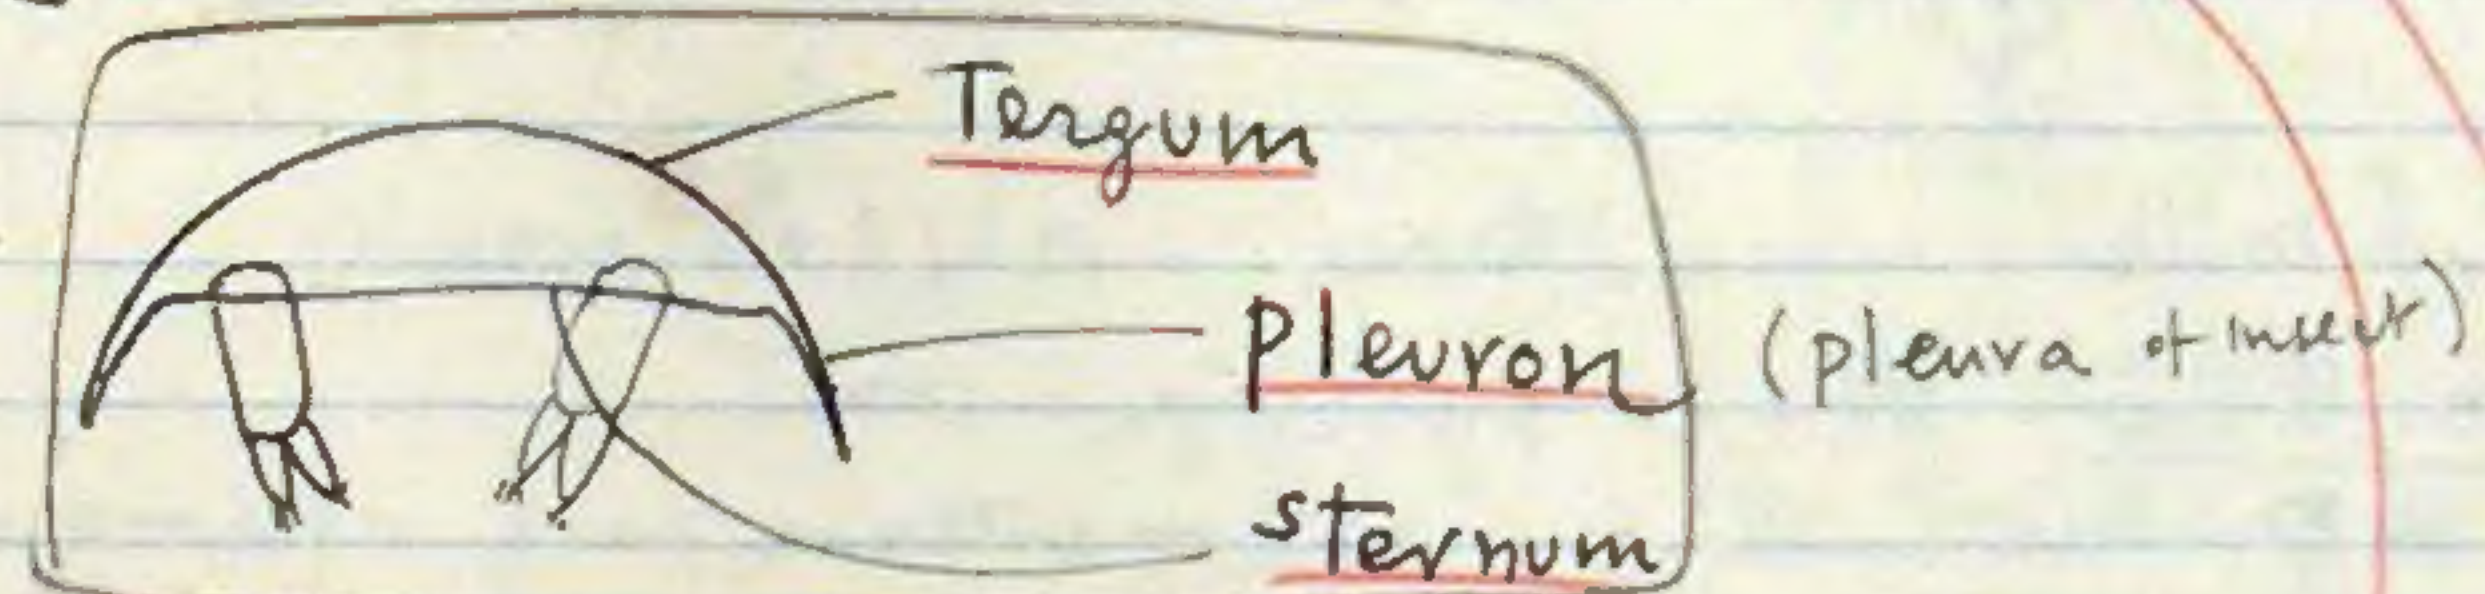 Tergum
Pleuron (pleura of insect)
sternum